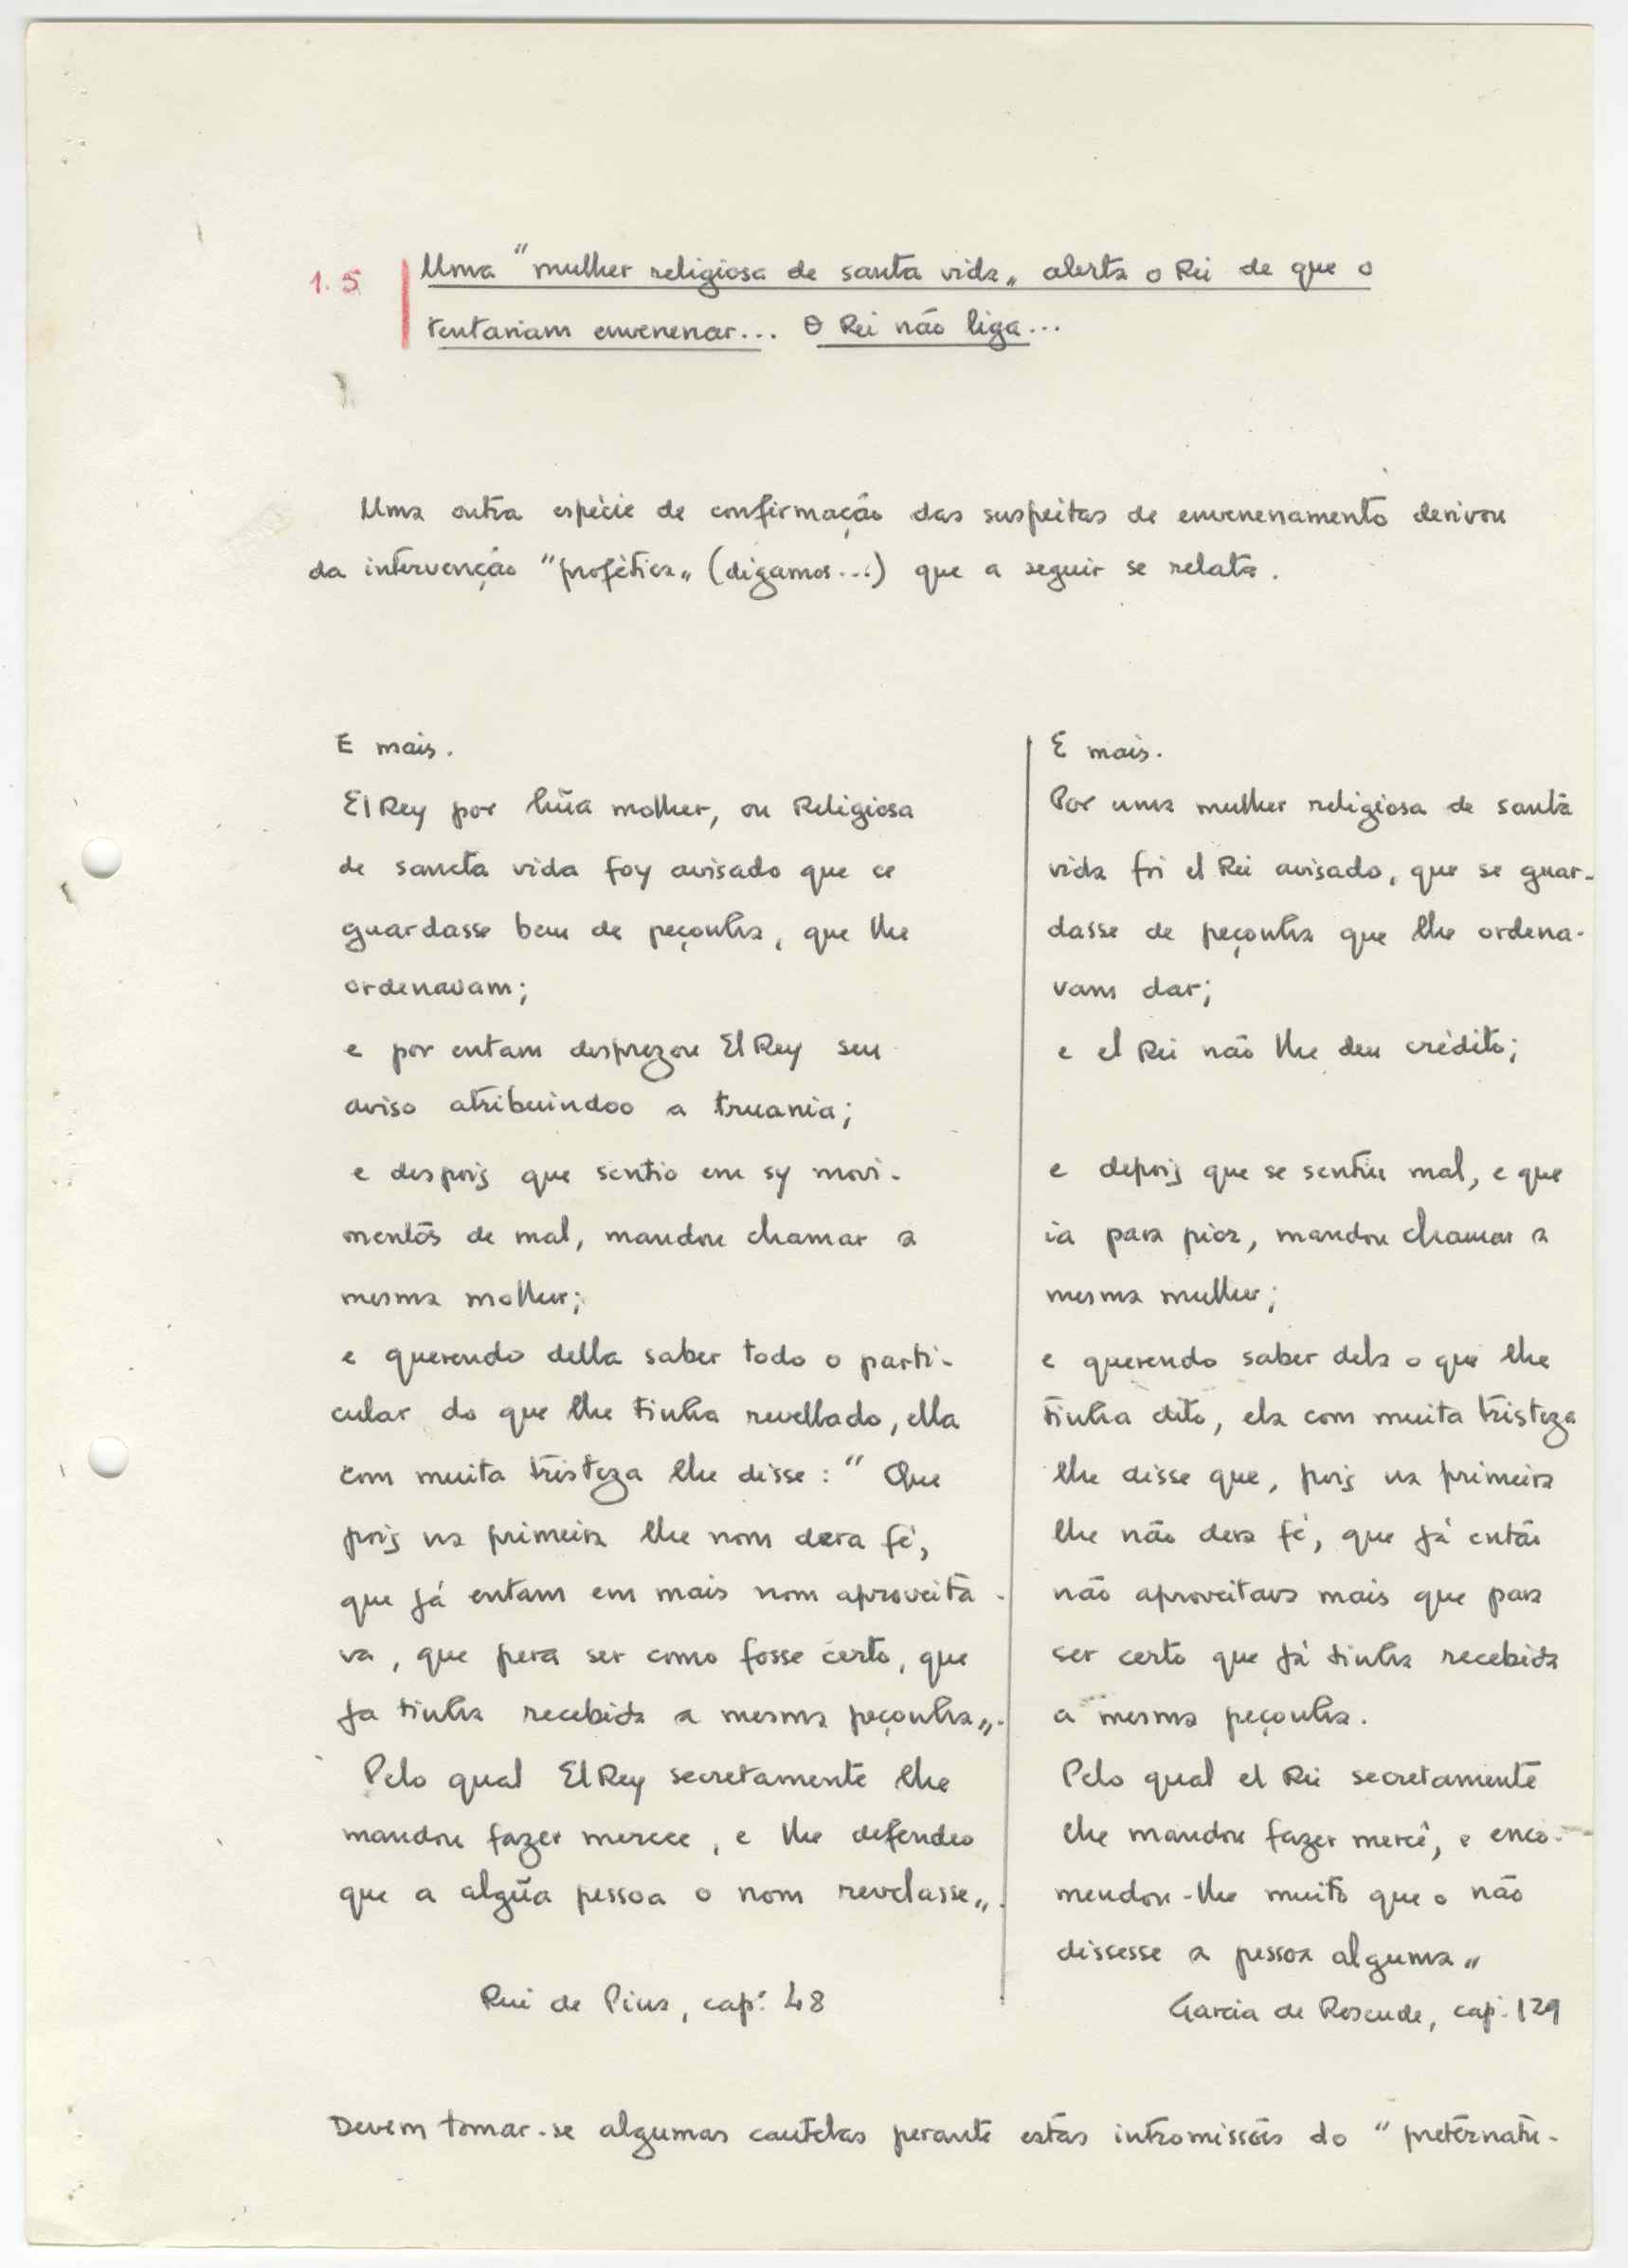 1.5 Uma "mulher religiosa de santa vida„ alerta o Rei de que o
tentariam envenenar... O Rei não liga...
Uma outra espécie de confirmação das suspeitas de envenenamento derivou
da intervenção "profética„ (digamos...) que a seguir se relata.
E mais.
El Rey por hũa molher, ou Religiosa
de sancta vida foy avisado que ce
guardasse bem de peçonha, que lhe
ordenavam;
e por entam desprezou El Rey seu
aviso atribuindoo a truania;
e despois que sentio em sy movi-
mentos de mal, mandou chamar a
mesma molher;
e querendo della saber todo o parti-
cular do que lhe tinha revellado, ella
com muita tristeza lhe disse: " Que
pois na primeira lhe nom dera fé,
que já entam em mais nom aproveita-
va, que pera ser como fosse certo, que
ja tinha recebida a mesma peçonha„.
Pelo qual El Rey secretamente lhe
mandou fazer mercee, e lhe defendeo
que a algũa pessoa o nom revelasse„.
Rui de Pina, cap.: 48
E mais.
Por uma mulher religiosa de santa
vida foi el Rei avisado, que se guar-
dasse de peçonha que lhe ordena-
vam dar;
e el Rei não lhe deu crédito;
e depois que se sentiu mal, e que
ia para pior, mandou chamar a
mesma mulher;
e querendo saber dela o que lhe
tinha dito, ela com muita tristeza
lhe disse que, pois na primeira
lhe não dera fé, que já então
não aproveitava mais que para
ser certo que já tinha recebida
a mesma peçonha.
Pelo qual el Rei secretamente
lhe mandou fazer mercê, e enco-
mendou-lhe muito que o não
dissesse a pessoa alguma„
Garcia de Resende, cap. 129
Devem tomar-se algumas cautelas perante estas intromissões do "preternatu-